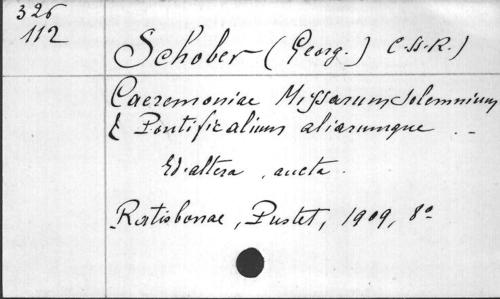 326
112
Schober (Georg.) C.S.R.)
Caeremoniae Missarum solemnium
& Pontificalium aliarumque . -
Ed. altera , aucta .
Ratisbonae , Pustet, 1909, 8º